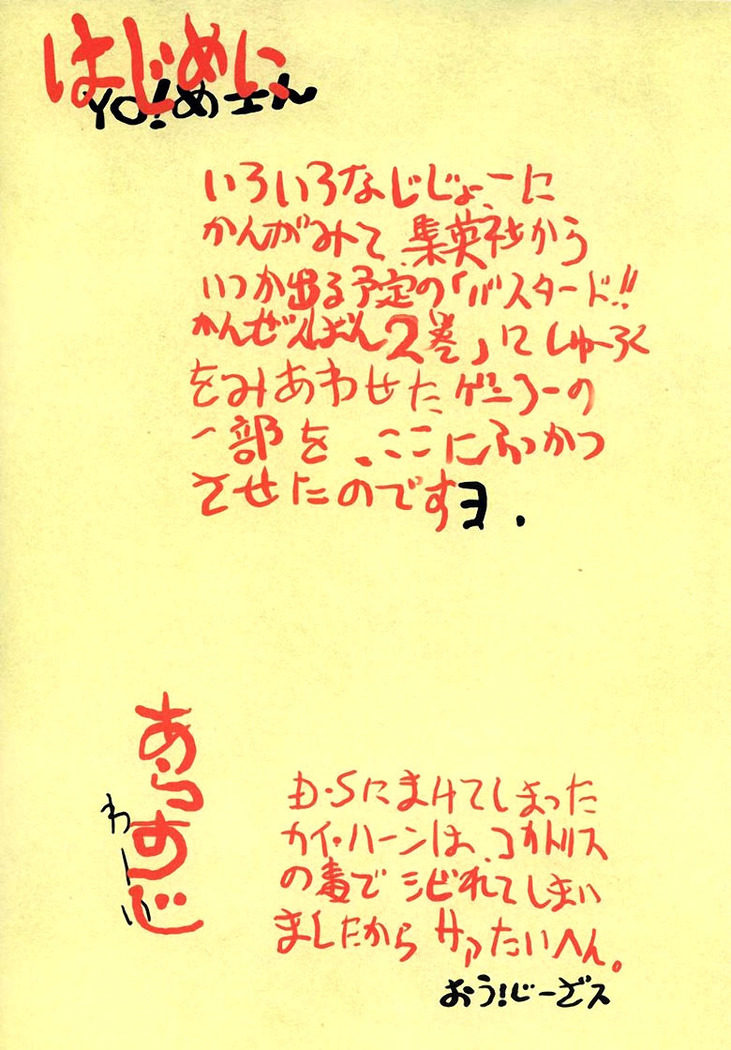 はじめに
YO!めさん
いろいろなじじょーに
かんがみて 集英社から
いつか出る予定の「バスタード!!
かんぜんばん2巻」にしゅーろく
をみあわせたゲンコーの
一部を、ここにふっかつ
させたのですヨ.
あらすじ
わーい
D・Sにまけてしまった
カイ・ハーンは、コカトリス
の毒でシビれてしまい
ましたからサァたいへん。
おう!じーざス